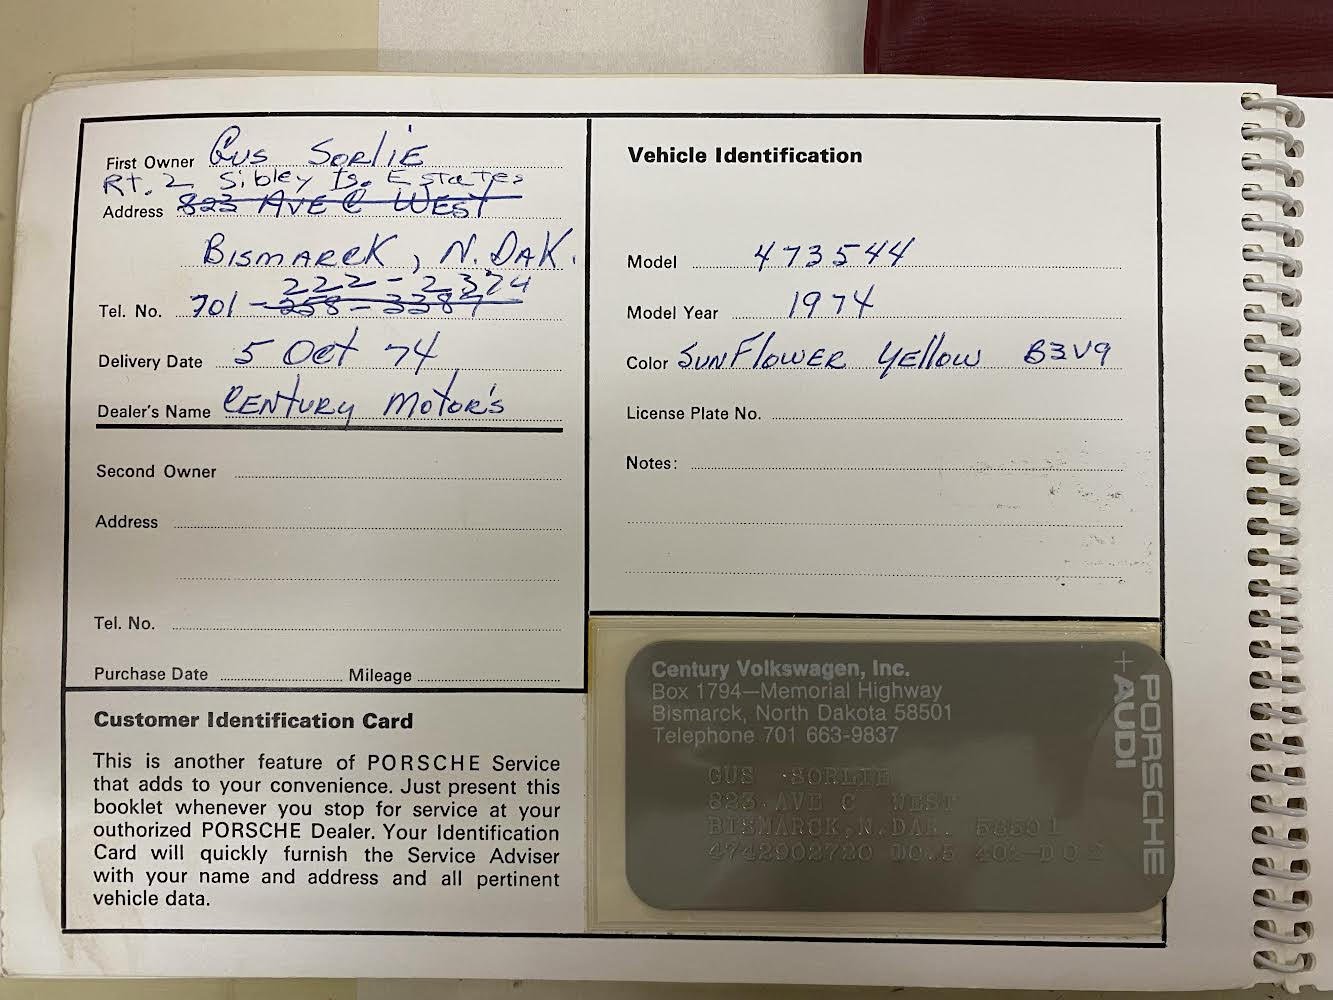 First Owner Gus Sorlie
Rt. 2 Sibley Is. Estates
Address 823 Ave C West
Bismarck, N. Dak.
222-2374
Tel. No. 701-258-3387
Delivery Date 5 Oct 74
Dealer's Name Century Motor's
Second Owner
Address
Tel. No.
Purchase Date Mileage
Customer Identification Card
This is another feature of PORSCHE Service
that adds to your convenience. Just present this
booklet whenever you stop for service at your
outhorized PORSCHE Dealer. Your Identification
Card will quickly furnish the Service Adviser
with your name and address and all pertinent
vehicle data.
Vehicle Identification
Model 473544
Model Year 1974
Color Sunflower Yellow B3V9
License Plate No.
Notes:
Century Volkswagen, Inc.
Box 1794—Memorial Highway
Bismarck, North Dakota 58501
Telephone 701 663-9837
GUS SORLIE
823 AVE C WEST
BISMARCK, N. DAK. 58501
4742902720 402-D02
PORSCHE
+AUDI